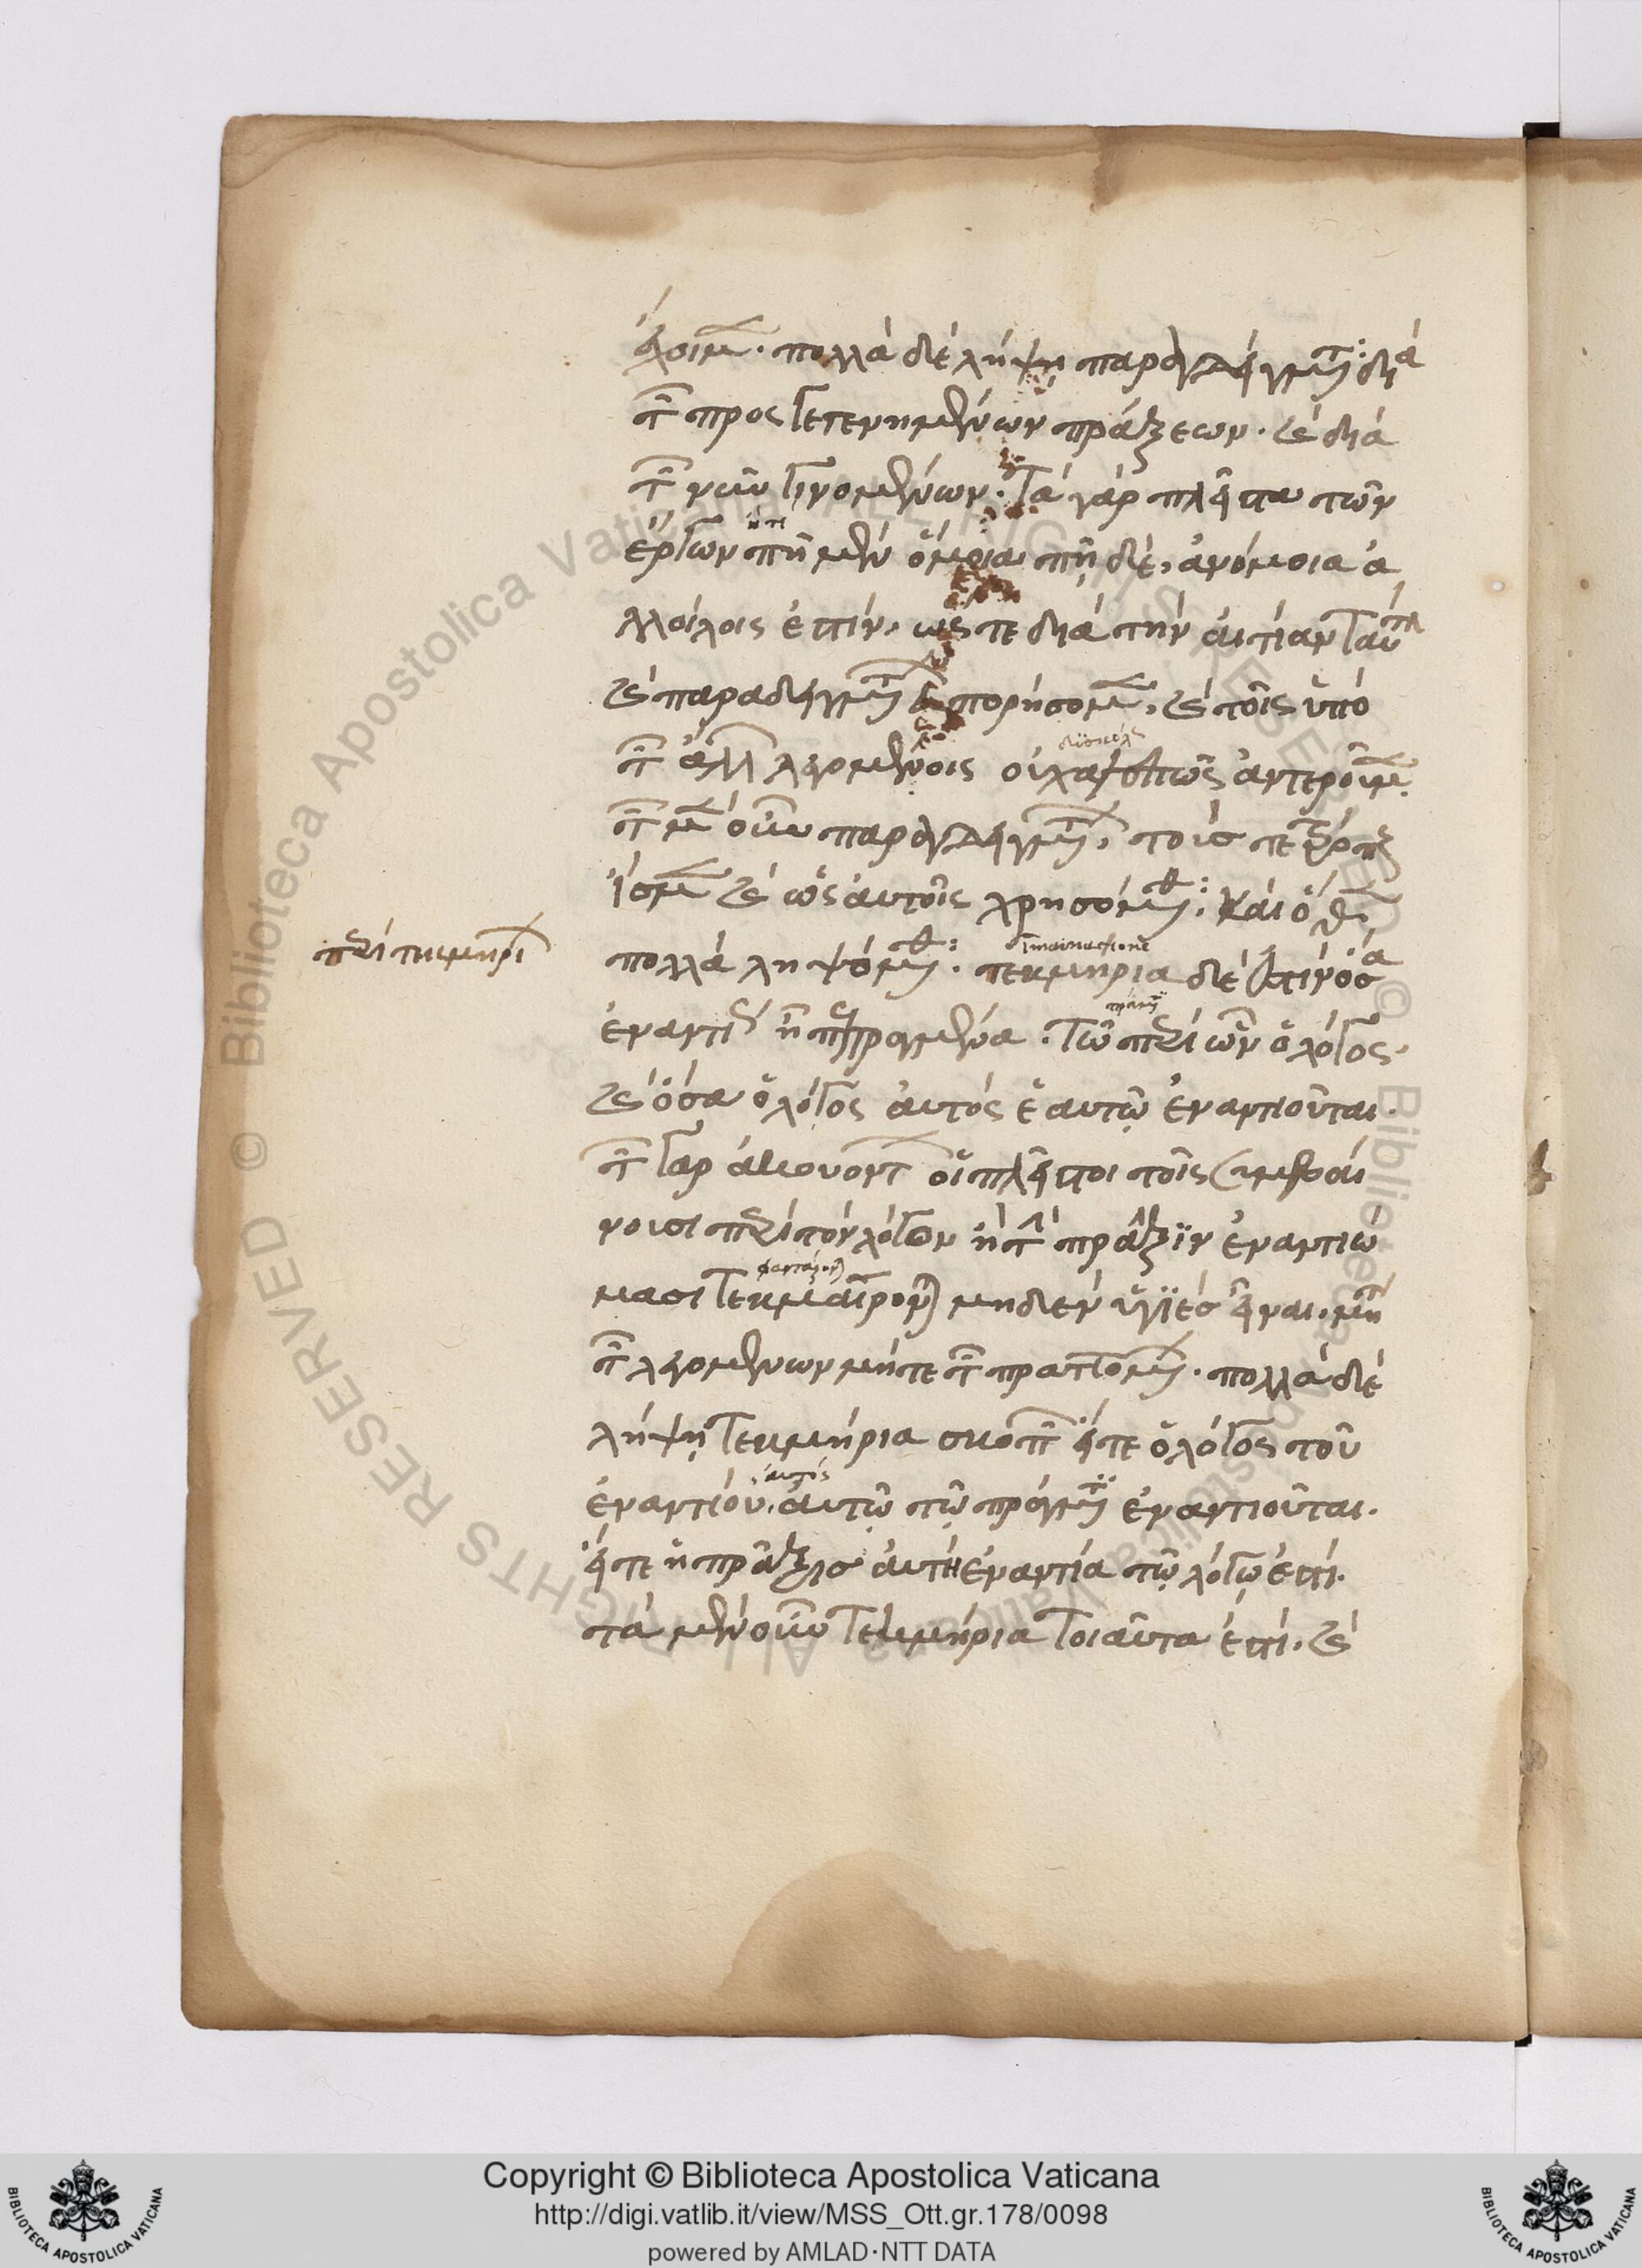 ἔχοιμεν. πολλὰ δὲ λήψῃ παραδείγματα: διὰ
τῶν προςγεγενημένων πράξεων. καὶ διὰ
τῶν νῦν γινομένων. τὰ γὰρ πλεῖστα τῶν
ἔργων πῆ μὲν ὅμοια πῆ δὲ, ἀνόμοια ἀ
λλοίλοις ἐστίν. ὥςτε διὰ τὴν αἰτίαν ταύτην
καὶ παραδειγμάτων εὐπορήσομεν, καὶ τοῖς ὑπὸ
τῶν ἄλλων λεγομένοις οὐ χαλεπῶς ἀντεροῦμεν.
τῶν μὲν οὖν παραδειγμάτων, τούσ τε τρόπους
ἴσμεν καὶ ὡς αὐτοῖς χρησόμεθα: καὶ ὅθεν
πολλὰ ληψόμεθα:
περὶ τεκμηρίων
τεκμήρια δὲ ἐστὶν ὅσα
ἐναντίως ἦ πεπραγμένα. τῶ περὶ ὧν ὁ λόγος.
καὶ ὅσα ὁ λόγος αὐτὸς ἑαυτῶ ἐναντιοῦται.
τῶν γὰρ ἀκουόντων οἱ πλεῖστοι τοῖς συμβαί
νουσι περὶ τὸν λόγον ἢ τὴν πρᾶξιν ἐναντιώ
μασι τεκμαίρονται μηδὲν ὑγιὲσ εἶναι. μήτε
τῶν λεγομένων μήτε τῶν πραττομένων. πολλὰ δὲ
λήψῃ τεκμήρια σκοπῶν εἴτε ὁ λόγος τοῦ
ἐναντίου. αὐτῶ τῶ πράγματι ἐναντιοῦται.
εἴτε ἡ πρᾶξισ αὐτὴ ἐναντία τῶ λόγῳ ἐστί.
τὰ μὲν οὖν τεκμήρια τοιαῦτα ἐστί. καὶ
Copyright © Biblioteca Apostolica Vaticana
http://digi.vatlib.it/view/MSS_Ott.gr.178/0098
powered by AMLAD·NTT DATA